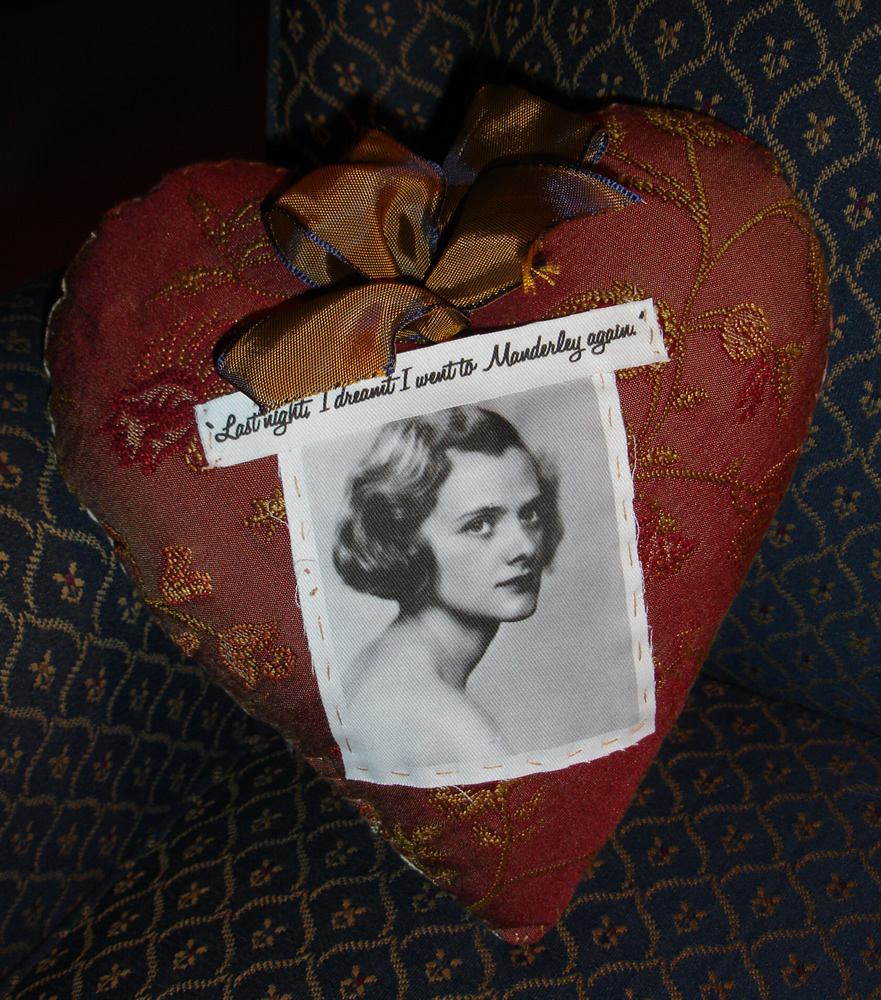 'Last night, I dreamt I went to Manderley again.'